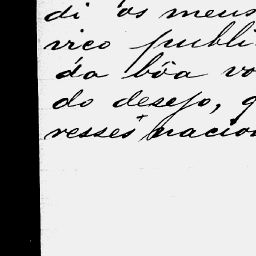 di os meus
viço publi
da bôa vo
do desejo, q
resses nacion